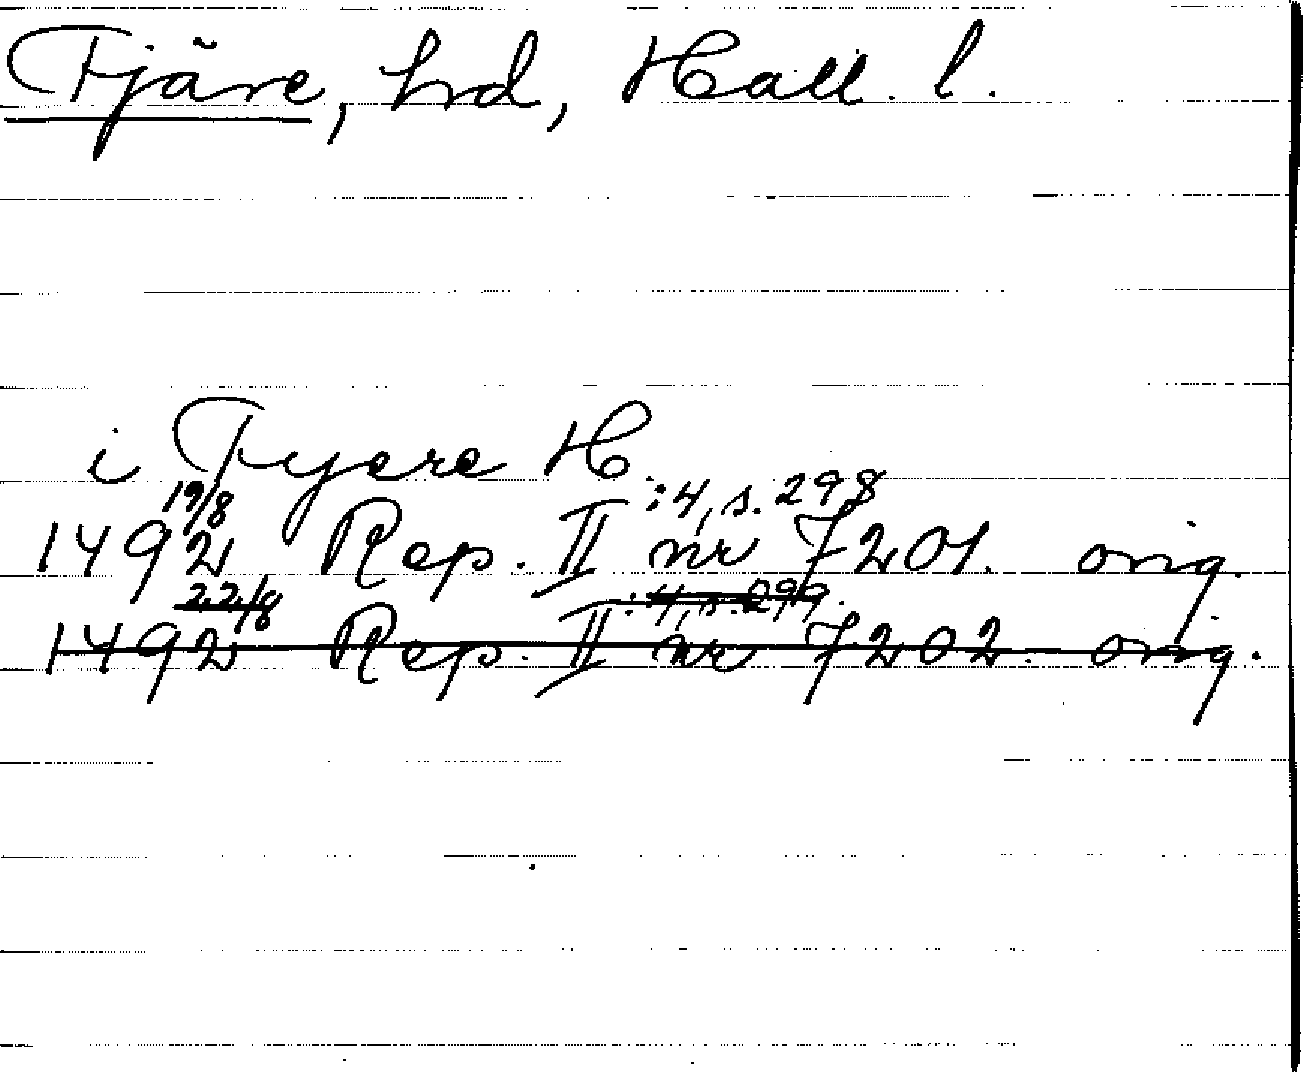 Fjäre, hrd, Hall. l.
i Fyere H.
19/8 :4, s. 298
1492 Rep. II nr 7201. orig.
22/8 :4, s. 299.
1492 Rep. II nr 7202. orig.